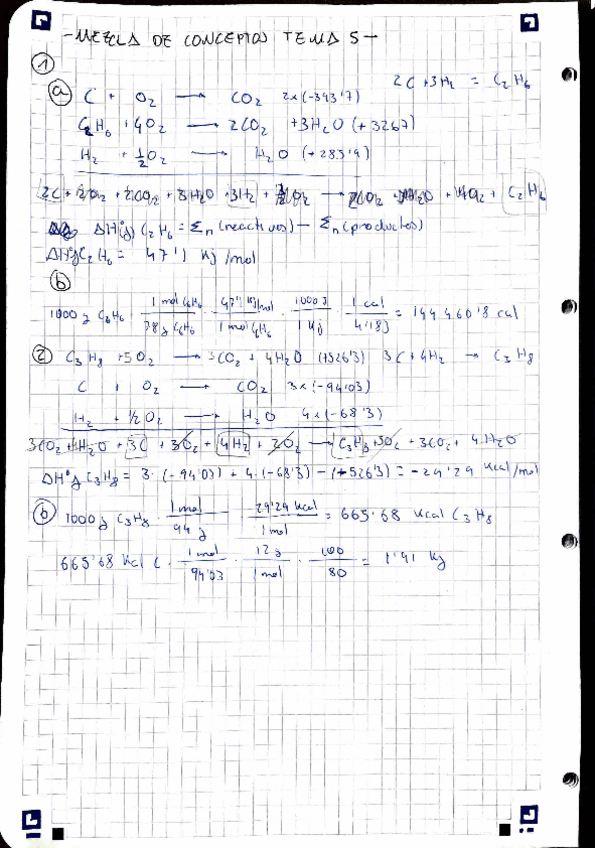 -MEZCLA DE CONCEPTOS TEMA 5-
1
a C + O₂ → CO₂ 2x(-393'7) 2C+3H₂ = C₂H₆
C₂H₆ + 4O₂ → 2CO₂ + 3H₂O (+3267)
H₂ + ½O₂ → H₂O (-285'9)
2C + 2O₂ + 2CO₂ + 3H₂O + 3H₂ + O₂ → 2CO₂ + 3H₂O + 4O₂ + C₂H₆
ΔH(f) C₂H₆ = Σn(reactivos) - Σn(productos)
ΔHºf C₂H₆ = 47'1 Kj/mol
b
1000 g C₆H₆ · 1 mol C₆H₆ / 78 g C₆H₆ · 47'1 Kj/mol / 1 mol C₆H₆ · 1000 J / 1 Kj · 1 cal / 4'18 J = 144.460'8 cal
2 C₃H₈ + 5O₂ → 3CO₂ + 4H₂O (+526'3) 3C+4H₂ → C₃H₈
C + O₂ → CO₂ 3x(-94'03)
H₂ + ½O₂ → H₂O 4x(-68'3)
3CO₂ + 4H₂O + 3C + 3O₂ + 4H₂ + 2O₂ → C₃H₈ + 5O₂ + 3CO₂ + 4H₂O
ΔHºf C₃H₈ = 3·(-94'03) + 4·(-68'3) - (+526'3) = -29'29 Kcal/mol
b 1000 g C₃H₈ · 1 mol / 44 g - 29'29 Kcal / 1 mol = 665'68 Kcal C₃H₈
665'68 Kcal C · 1 mol / 94'03 · 12 g / 1 mol · 100 / 80 = 1'41 Kg